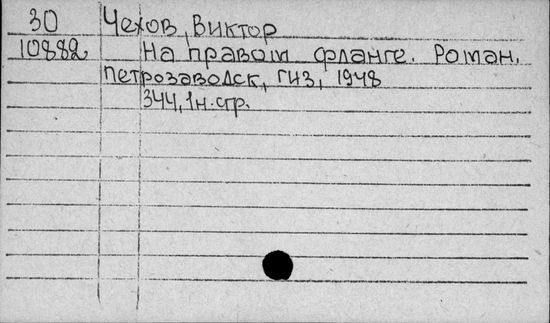 30 Чехов, Виктор
10882 На правом фланге. Роман.
Петрозаводск, ГИЗ, 1948
344, 1н. стр.